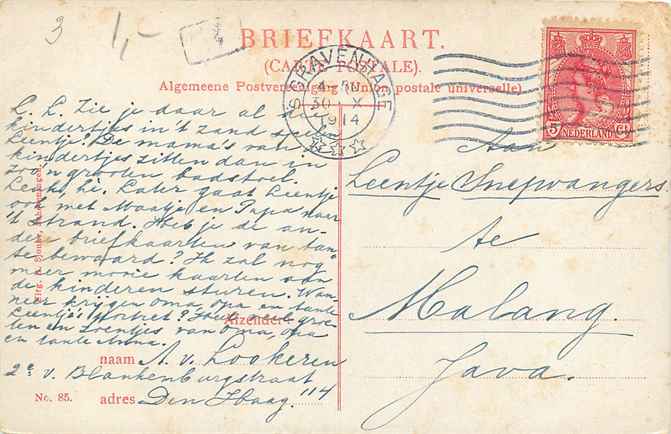 3 1,-
BRIEFKAART.
(CARTE POSTALE).
Algemeene Postvereeniging (Union postale universelle)
'S-GRAVENHAGE
30 X
1914
5 Ct
NEDERLAND
L. L. Zie je daar al de
kindertjes in 't zand spelen
Leentje. De mama's van de
kindertjes zitten dan in
zoo'n grooten badstoel.
Leuk, he. Later gaat Leentje
ook met Maatje en Papa naar
't strand. Heb je de an-
dere briefkaarten van tan-
te bewaard? Ik zal nog
meer mooie kaarten van
de kinderen sturen. Wan-
neer krijgen oma, opa en tante
Leentje's portret? Heel veel groe-
ten en zoentjes van Oma, opa
en tante Anna.
Afzender:
naam A. v. Lookeren
2e v. Blankenburgstraat
No. 85. adres Den Haag. 114
Aan
Leentje Snepwangers
te
Malang.
Java.